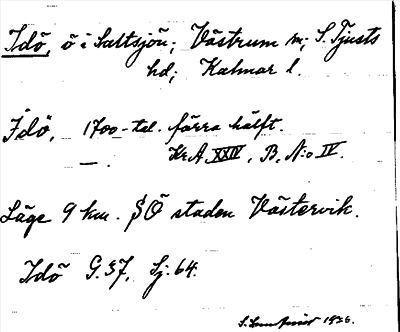 Idö, ö i Saltsjön; Västrum sn; S. Tjusts
hd; Kalmar l.
Idö, 1700-tal. förra hälft.
— . Kr A XXIV, B, N:o IV.
Läge 9 km. SÖ staden Västervik.
Idö G. 37, Sj. 64.
S. 1926.